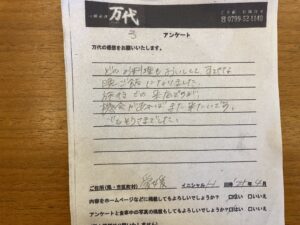 万代
☎0799-52-1140
アンケート
万代の感想をお願いいたします。
どのお料理もおいしく すてきな
晩ご飯になりました
の来店ですが
機会があればまた来たいです。
ごちそうさまでした。
ご住所(県・市区町村) 愛媛 イニシャル
内容をホームページなどに掲載してもよろしいでしょうか? □はい □いいえ
アンケートと食事中の写真の掲載もしてもよろしいでしょうか? □はい □いいえ